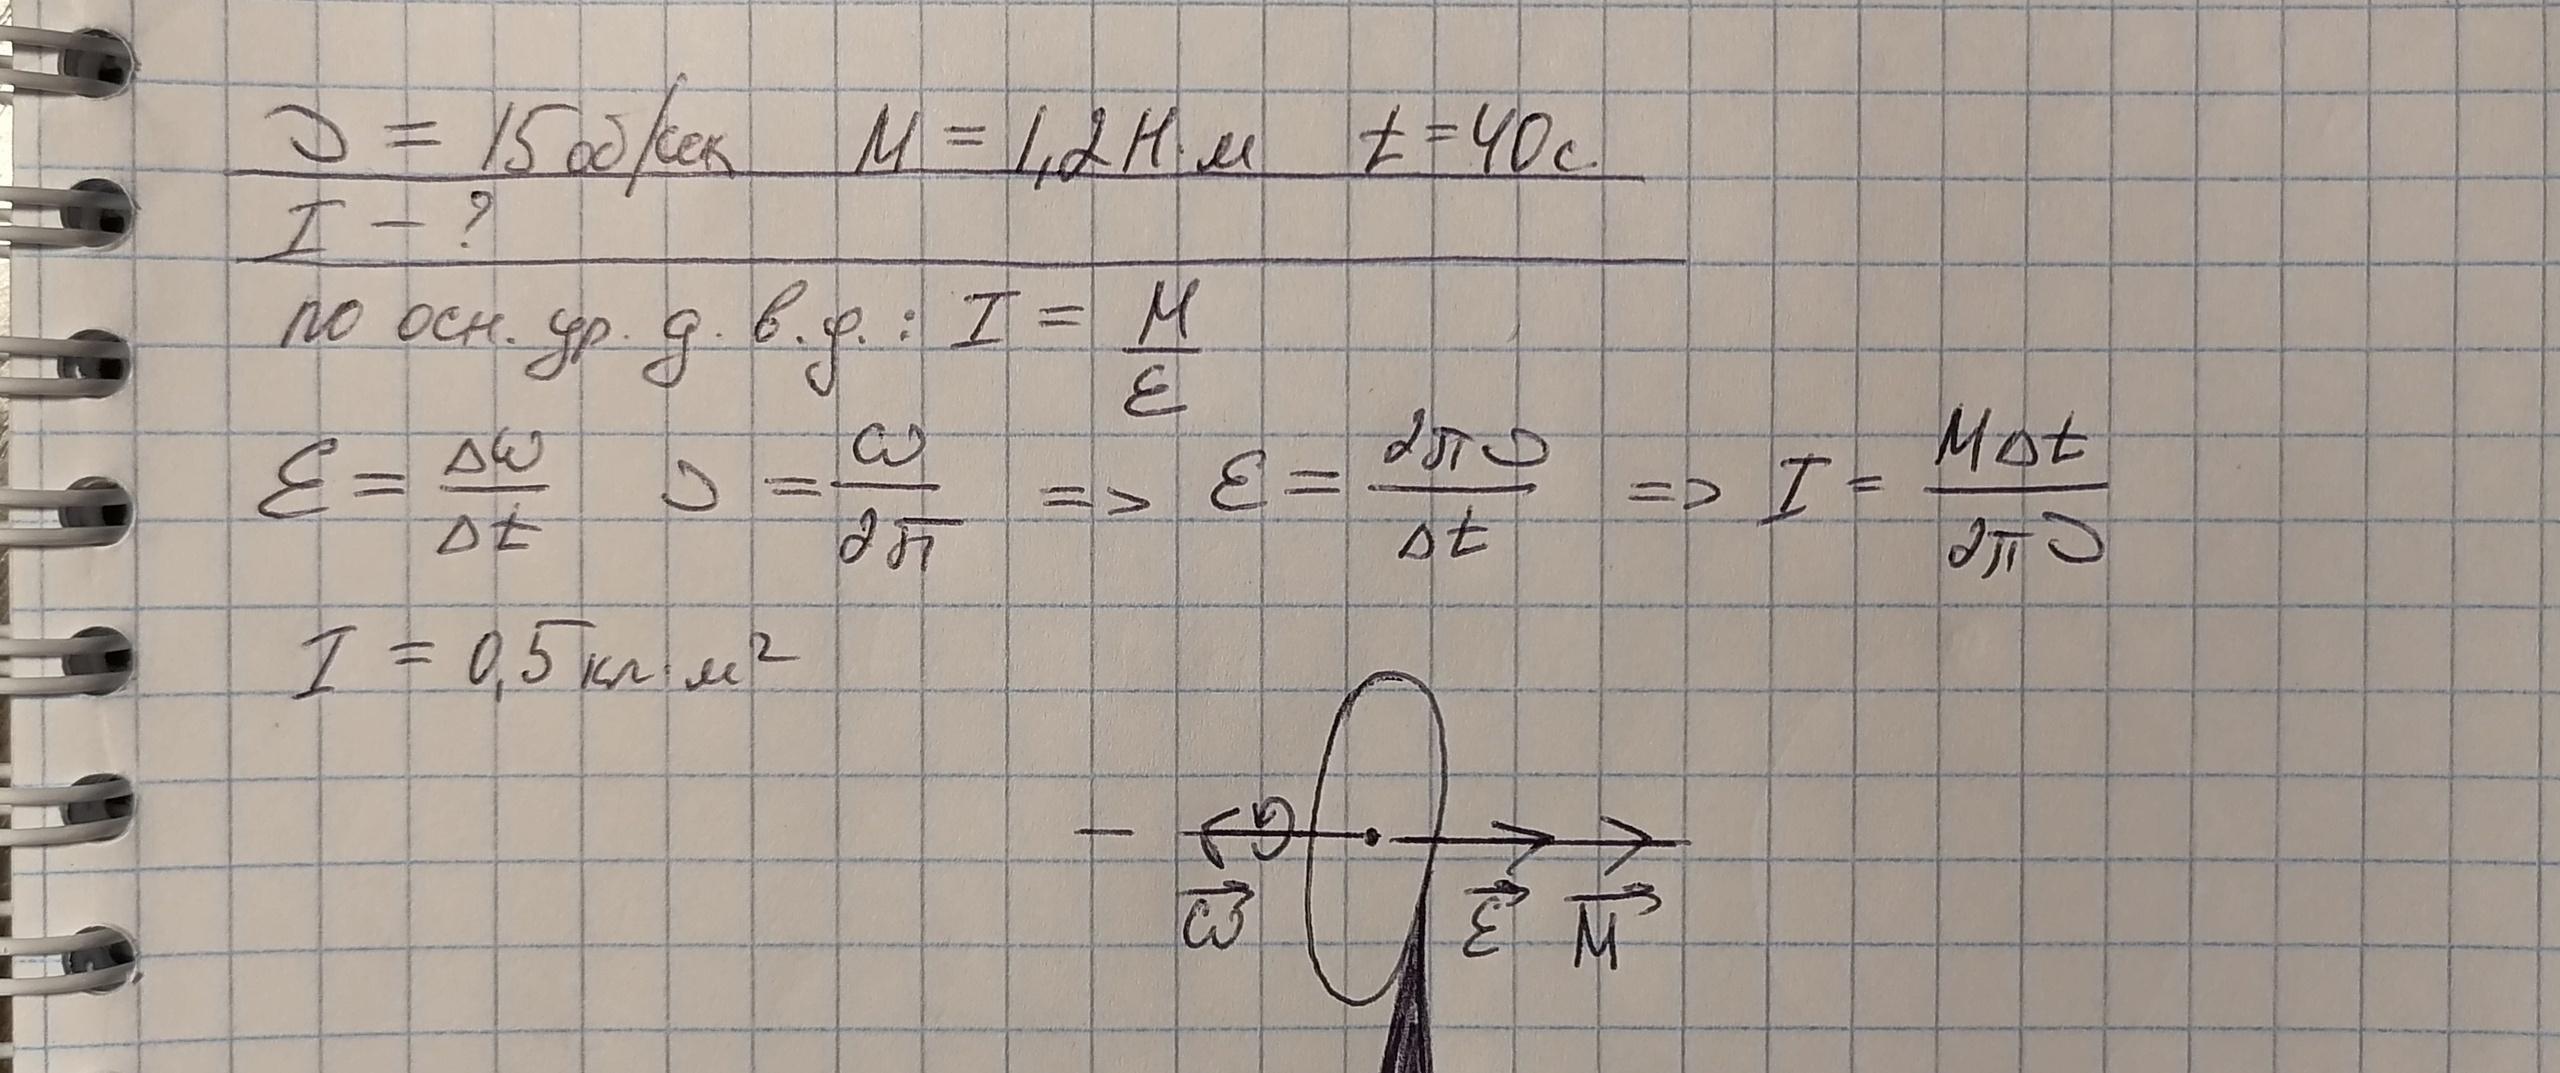 υ = 15 об/сек M = 1,2 Н·м t = 40 с.
I - ?
по осн. ур. д. в. д.: I = M/ε
ε = Δω/Δt υ = ω/2π => ε = 2πυ/Δt => I = MΔt/2πυ
I = 0,5 кг·м²
ω ε M